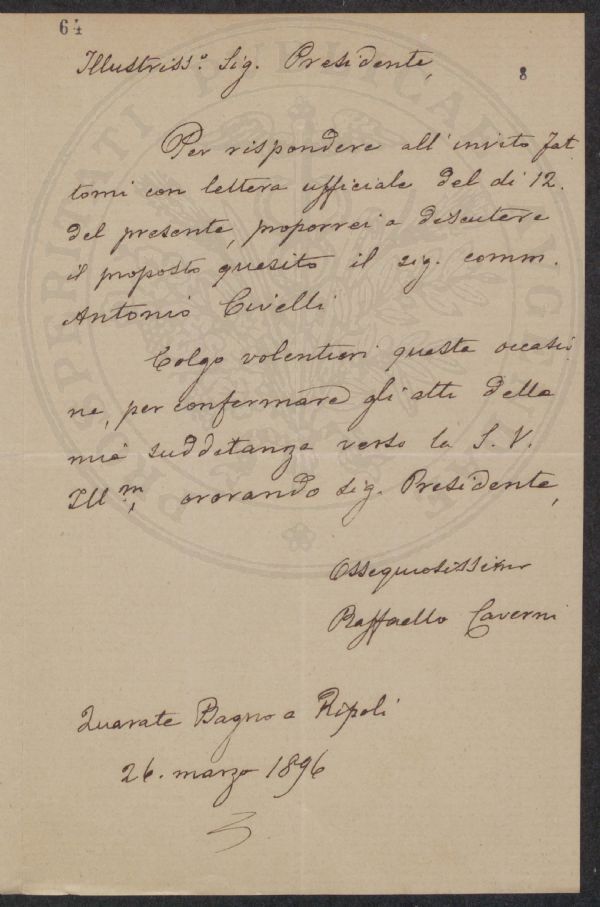 64
8
Illustriss.º Sig. Presidente,
Per rispondere all'invito fat
tomi con lettera ufficiale del di 12.
del presente, proporrei a discutere
il proposto quesito il sig. comm.
Antonio Civelli
Colgo volentieri questa occasio
ne, per confermare gli atti della
mia sudditanza verso la S. V.
Ill.m, onorando sig. Presidente,
Ossequiosissimo
Raffaello Caverni
Quarate Bagno a Ripoli
26. marzo 1896